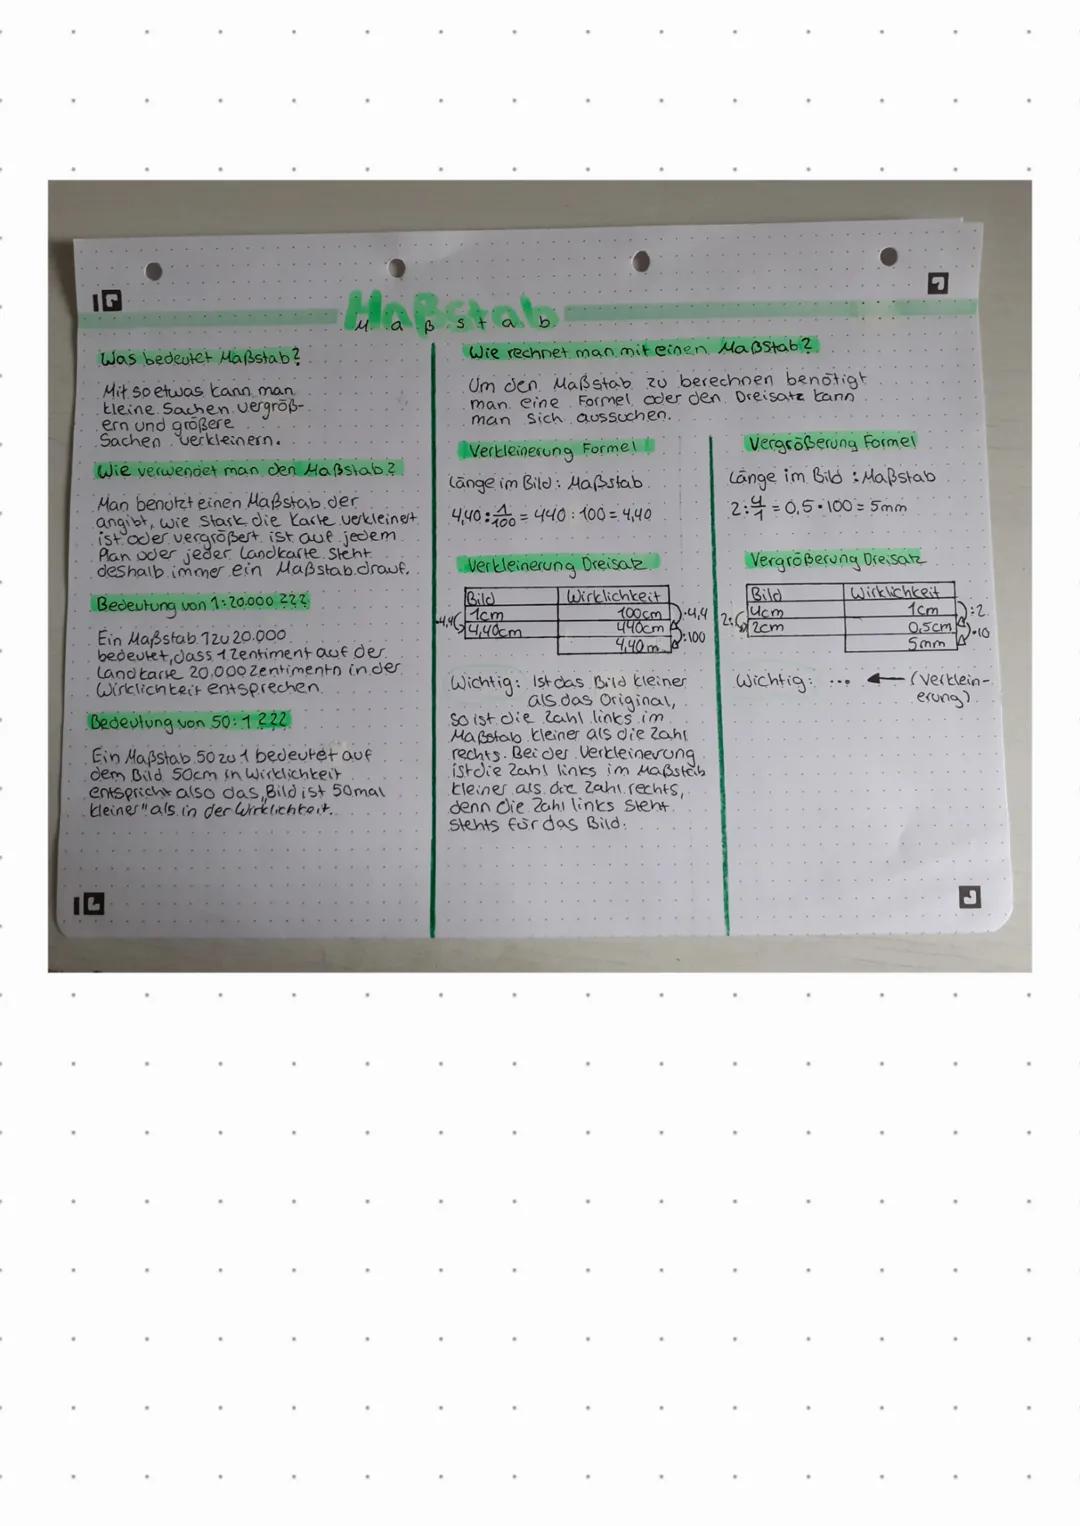 Maßstab
M a ß s t a b
Was bedeutet Maßstab?
Mit so etwas kann man
kleine Sachen vergröß-
ern und größere
Sachen verkleinern.
Wie verwendet man den Maßstab?
Man benötzt einen Maßstab der
angibt, wie stark die Karte verkleinert
ist oder vergrößert ist auf jedem
Plan oder jeder Landkarte steht
deshalb immer ein Maßstab drauf.
Bedeutung von 1:20.000 ???
Ein Maßstab 1zu 20.000
bedeutet, dass 1 Zentiment auf der
Landkarte 20.000 Zentimentn in der
Wirklichkeit entsprechen.
Bedeutung von 50:1 ???
Ein Maßstab 50 zu 1 bedeutet auf
dem Bild 50cm in Wirklichkeit
entspricht also das „Bild ist 50mal
kleiner" als in der Wirklichkeit.
Wie rechnet man mit einen Maßstab?
Um den Maßstab zu berechnen benötigt
man eine Formel oder den Dreisatz kann
man sich aussuchen.
Verkleinerung Formel
Länge im Bild : Maßstab
4,40 : 1/100 = 440 : 100 = 4,40
Verkleinerung Dreisatz
Bild Wirklichkeit
1cm 100cm
4,40cm 440cm
4,40 m
·4,4 ·4,4
:100
Wichtig: Ist das Bild kleiner
als das Original,
so ist die Zahl links im
Maßstab kleiner als die Zahl
rechts. Bei der Verkleinerung
ist die Zahl links im Maßstab
kleiner als die Zahl rechts,
denn die Zahl links steht
stehts für das Bild.
Vergrößerung Formel
Länge im Bild : Maßstab
2 : 4/1 = 0,5 · 100 = 5mm
Vergrößerung Dreisatz
Bild Wirklichkeit
4cm 1cm
2cm 0,5cm
5mm
2: :2
·10
Wichtig: ... ← (Verklein-
erung)